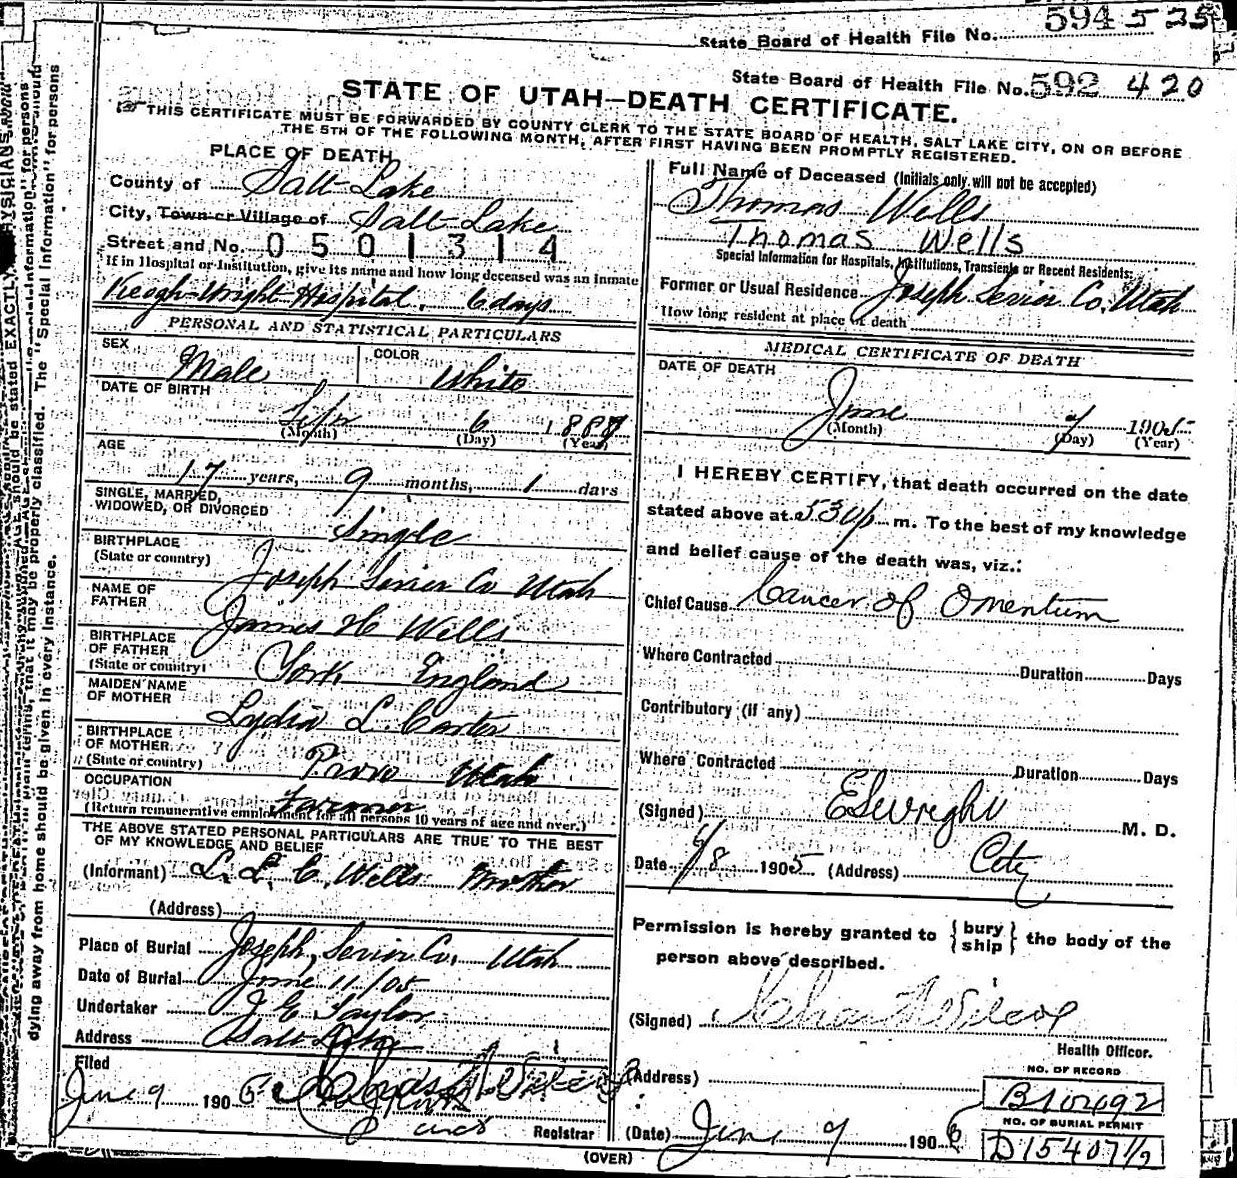 State Board of Health File No. 594 525
State Board of Health File No. 592 420
STATE OF UTAH—DEATH CERTIFICATE.
THIS CERTIFICATE MUST BE FORWARDED BY COUNTY CLERK TO THE STATE BOARD OF HEALTH, SALT LAKE CITY, ON OR BEFORE
THE 5TH OF THE FOLLOWING MONTH, AFTER FIRST HAVING BEEN PROMPTLY REGISTERED.
PLACE OF DEATH
County of Salt Lake
City, Town or Village of Salt Lake
Street and No. 0501314
If in Hospital or Institution, give its name and how long deceased was an inmate
Keogh-Wright Hospital. 6 days
PERSONAL AND STATISTICAL PARTICULARS
SEX Male COLOR White
DATE OF BIRTH
Sep 6 1887
(Month) (Day) (Year)
AGE
17 years, 9 months, 1 days
SINGLE, MARRIED,
WIDOWED, OR DIVORCED
Single
BIRTHPLACE
(State or country) Joseph Sevier Co Utah
NAME OF
FATHER James H Wells
BIRTHPLACE
OF FATHER
(State or country) York England
MAIDEN NAME
OF MOTHER Lydia L. Carter
BIRTHPLACE
OF MOTHER
(State or country) Provo Utah
OCCUPATION Farmer
(Return remunerative employment for all persons 10 years of age and over.)
THE ABOVE STATED PERSONAL PARTICULARS ARE TRUE TO THE BEST
OF MY KNOWLEDGE AND BELIEF
(Informant) L. L. C. Wells Mother
(Address)
Place of Burial Joseph, Sevier Co. Utah
Date of Burial June 11/05
Undertaker J. E. Taylor
Address Salt Lake
Filed
June 9 1905
Registrar
Full Name of Deceased (Initials only will not be accepted)
Thomas Wells
Thomas Wells
Special Information for Hospitals, Institutions, Transients or Recent Residents:
Former or Usual Residence Joseph Sevier Co. Utah
How long resident at place of death
MEDICAL CERTIFICATE OF DEATH
DATE OF DEATH
June 7 1905
(Month) (Day) (Year)
I HEREBY CERTIFY, that death occurred on the date
stated above at 530 p m. To the best of my knowledge
and belief cause of the death was, viz.:
Chief Cause Cancer of Omentum
Where Contracted Duration Days
Contributory (if any)
Where Contracted Duration Days
(Signed) E S Wright M. D.
Date 6/8 1905 (Address) City
Permission is hereby granted to { bury ship } the body of the
person above described.
(Signed) Chas Wilcox
Health Officer.
(Address)
NO. OF RECORD
B10492
NO. OF BURIAL PERMIT
D15407 1/2
(Date) June 9 1905
(OVER)
dying away from home should be given in every instance.